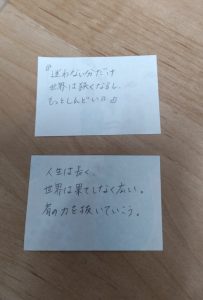 『迷わない分だけ
世界は狭くなるし、
もっとしんどいよ』
人生は長く、
世界は果てしなく広い。
肩の力を抜いていこう。